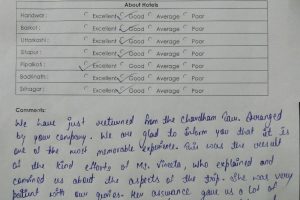 About Hotels
Haridwar : Excellent Good Average Poor
Barkot : Excellent Good Average Poor
Uttarkashi : Excellent Good Average Poor
Sitapur : Excellent Good Average Poor
Pipalkoti : Excellent Good Average Poor
Badrinath : Excellent Good Average Poor
Srinagar : Excellent Good Average Poor
Comments:
We have just returned from the Chardham Arranged
by your company. We are glad to inform you that it is
one of the most memorable experience. This was the result
of the kind efforts of Ms. Vineeta, who explained and
convinced us about the aspects of the trip. She was very
patient with our queries. Her assurance gave us a lot of